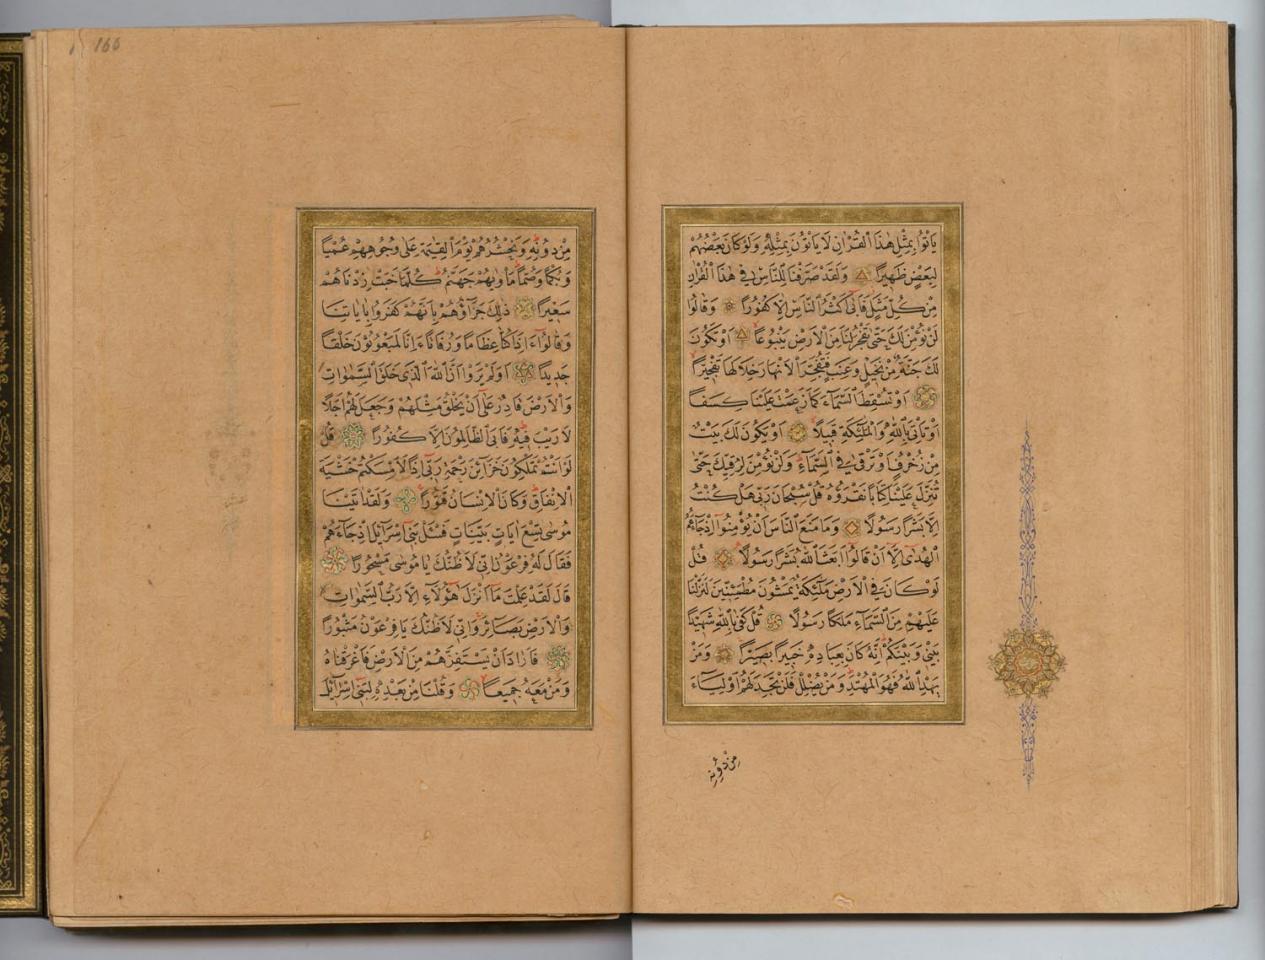 يَاْتُوا بِمِثْلِ هٰذَا الْقُرْاٰنِ لَا يَاْتُونَ بِمِثْلِهٖ وَلَوْ كَانَ بَعْضُهُمْ
لِبَعْضٍ ظَهِيرًا وَلَقَدْ صَرَّفْنَا لِلنَّاسِ فِي هٰذَا الْقُرْاٰنِ
مِنْ كُلِّ مَثَلٍ فَاَبٰى اَكْثَرُ النَّاسِ اِلَّا كُفُورًا وَقَالُوا
لَنْ نُؤْمِنَ لَكَ حَتّٰى تَفْجُرَ لَنَا مِنَ الْاَرْضِ يَنْبُوعًا اَوْ تَكُونَ
لَكَ جَنَّةٌ مِنْ نَخِيلٍ وَعِنَبٍ فَتُفَجِّرَ الْاَنْهَارَ خِلَالَهَا تَفْجِيرًا
اَوْ تُسْقِطَ السَّمَآءَ كَمَا زَعَمْتَ عَلَيْنَا كِسَفًا
اَوْ تَاْتِيَ بِاللّٰهِ وَالْمَلٰٓئِكَةِ قَبِيلًا اَوْ يَكُونَ لَكَ بَيْتٌ
مِنْ زُخْرُفٍ اَوْ تَرْقٰى فِي السَّمَآءِ وَلَنْ نُؤْمِنَ لِرُقِيِّكَ حَتّٰى
تُنَزِّلَ عَلَيْنَا كِتَابًا نَقْرَؤُهُ قُلْ سُبْحَانَ رَبِّي هَلْ كُنْتُ
اِلَّا بَشَرًا رَسُولًا وَمَا مَنَعَ النَّاسَ اَنْ يُؤْمِنُوا اِذْ جَآءَهُمُ
الْهُدٰى اِلَّا اَنْ قَالُوا اَبَعَثَ اللّٰهُ بَشَرًا رَسُولًا قُلْ
لَوْ كَانَ فِي الْاَرْضِ مَلٰٓئِكَةٌ يَمْشُونَ مُطْمَئِنِّينَ لَنَزَّلْنَا
عَلَيْهِمْ مِنَ السَّمَآءِ مَلَكًا رَسُولًا قُلْ كَفٰى بِاللّٰهِ شَهِيدًا
بَيْنِي وَبَيْنَكُمْ اِنَّهُ كَانَ بِعِبَادِهٖ خَبِيرًا بَصِيرًا وَمَنْ
يَهْدِ اللّٰهُ فَهُوَ الْمُهْتَدِ وَمَنْ يُضْلِلْ فَلَنْ تَجِدَ لَهُمْ اَوْلِيَآءَ
مِنْ دُونِهٖ
166
مِنْ دُونِهٖ وَنَحْشُرُهُمْ يَوْمَ الْقِيٰمَةِ عَلٰى وُجُوهِهِمْ عُمْيًا
وَبُكْمًا وَصُمًّا مَاْوٰيهُمْ جَهَنَّمُ كُلَّمَا خَبَتْ زِدْنَاهُمْ
سَعِيرًا ذٰلِكَ جَزَآؤُهُمْ بِاَنَّهُمْ كَفَرُوا بِاٰيَاتِنَا
وَقَالُوا ءَاِذَا كُنَّا عِظَامًا وَرُفَاتًا ءَاِنَّا لَمَبْعُوثُونَ خَلْقًا
جَدِيدًا اَوَلَمْ يَرَوْا اَنَّ اللّٰهَ الَّذِي خَلَقَ السَّمٰوَاتِ
وَالْاَرْضَ قَادِرٌ عَلٰى اَنْ يَخْلُقَ مِثْلَهُمْ وَجَعَلَ لَهُمْ اَجَلًا
لَا رَيْبَ فِيهِ فَاَبَى الظَّالِمُونَ اِلَّا كُفُورًا قُلْ
لَوْ اَنْتُمْ تَمْلِكُونَ خَزَآئِنَ رَحْمَةِ رَبِّي اِذًا لَاَمْسَكْتُمْ خَشْيَةَ
الْاِنْفَاقِ وَكَانَ الْاِنْسَانُ قَتُورًا وَلَقَدْ اٰتَيْنَا
مُوسٰى تِسْعَ اٰيَاتٍ بَيِّنَاتٍ فَسْئَلْ بَنِي اِسْرَآئِلَ اِذْ جَآءَهُمْ
فَقَالَ لَهُ فِرْعَوْنُ اِنِّي لَاَظُنُّكَ يَا مُوسٰى مَسْحُورًا
قَالَ لَقَدْ عَلِمْتَ مَا اَنْزَلَ هٰؤُلَآءِ اِلَّا رَبُّ السَّمٰوَاتِ
وَالْاَرْضِ بَصَآئِرَ وَاِنِّي لَاَظُنُّكَ يَا فِرْعَوْنُ مَثْبُورًا
فَاَرَادَ اَنْ يَسْتَفِزَّهُمْ مِنَ الْاَرْضِ فَاَغْرَقْنَاهُ
وَمَنْ مَعَهُ جَمِيعًا وَقُلْنَا مِنْ بَعْدِهٖ لِبَنِي اِسْرَآئِلَ